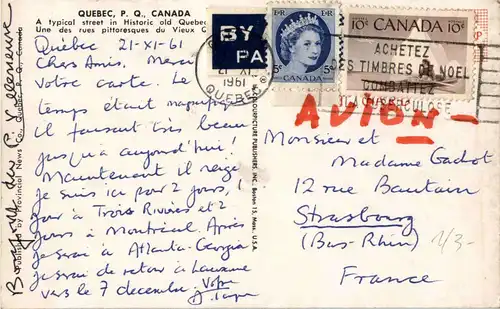 QUEBEC, P. Q., CANADA
A typical street in Historic old Quebec
Une des rues pittoresques du Vieux
Québec 21-XI-61
Chers Amis. Merci
votre carte. Le
temps étant magnifique
il faisait très beau
jusqu'à aujourd'hui!
Maintenant il neige
Je suis ici pour 2 jours, 1
jour à Trois Rivières et 2
jours à Montréal. Après
je serai à Atlanta-Georgia
Je serai de retour à Lausanne
vers le 7 décembre. Votre
Published by Provincial News Co., Quebec P. Q., Canada
COLOURPICTURE PUBLISHERS, INC., Boston 15, Mass., U.S.A.
BY
PA
5c CANADA 5c
10c CANADA 10c
21 XI
1961
QUEBEC
ACHETEZ
LES TIMBRES DE NOEL
COMBATTEZ
LA TUBERCULOSE
AVION
Monsieur et
Madame Gachot
12 rue Bautain
Strasbourg
(Bas-Rhin)
France
1/3-